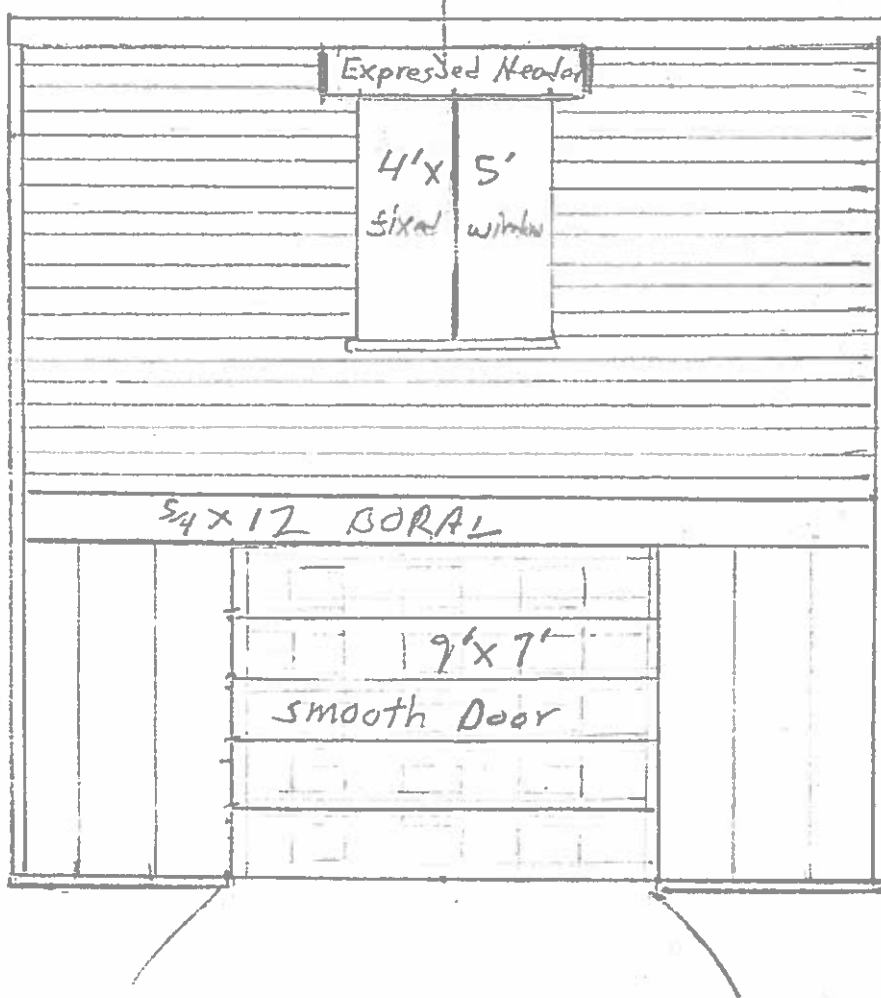 Expressed Header
4' x 5'
fixed window
5/4 x 12 BORAL
9' x 7'
smooth Door